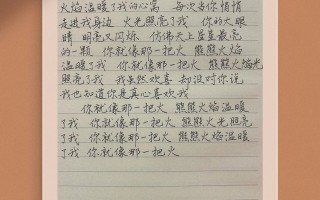 火焰温暖了我的心窝 每次当你悄悄
走进我身边 火光照亮了我 你的大眼
睛 明亮又闪烁 仿佛天上星星最亮
的一颗 你就像那一把火 熊熊火焰
温暖了我 你就像那一把火 熊熊火焰光
照亮了我 我虽然欢喜 却没对你说
我也知道你是真心喜欢我
你就像那一把火 熊熊火焰温暖
了我 你就像那一把火 熊熊火光照亮
了我 你就像那一把火 熊熊火焰温暖
了我 你就像那一把火